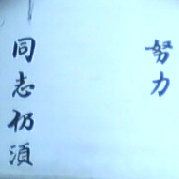 努力
同志仍須